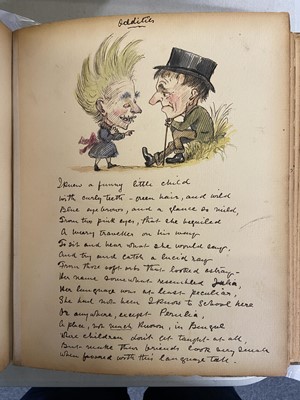 Oddities
I know a funny little child
with curly teeth - green hair, and wild
Blue eyebrows, and a glance so mild,
From two pink eyes, that she beguiled
A weary traveller on his way
To sit and hear what she would say,
And try and catch a lucid ray
From those soft orbs that looked astray -
Her name somewhat resembled Julia,
Her language was at least peculiar,
She had not been I know to school here
Or anywhere, except Perulia,
A place, not much known, in
where children don't get taught at all,
But make their friends look very small
When favored with this language tall.-